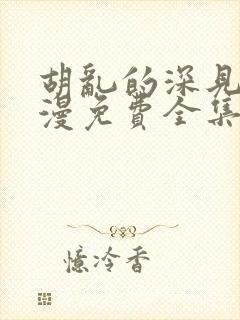 胡亂的深見
漫免費全集
憶冷香